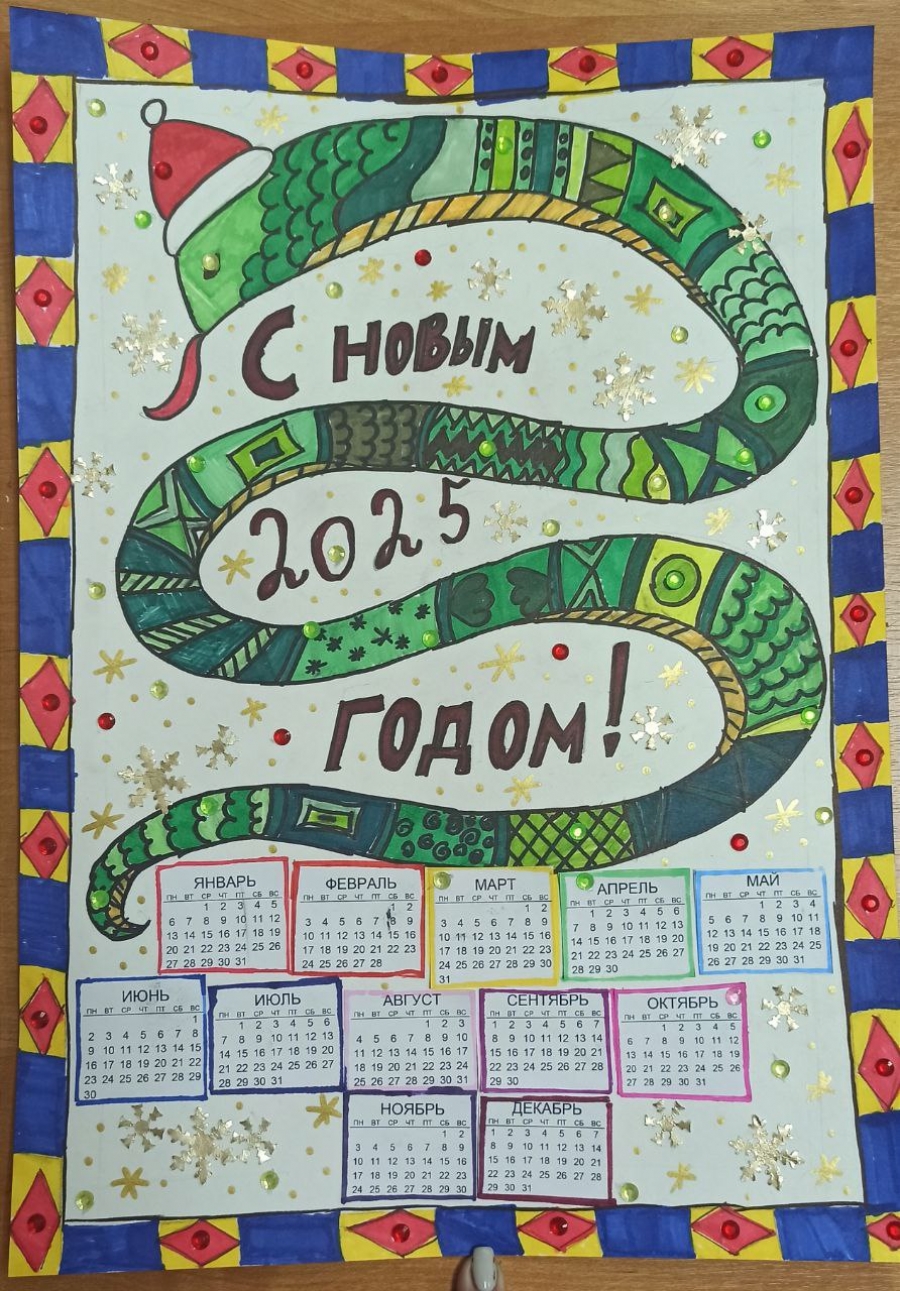 С НОВЫМ
2025
ГОДОМ!
ЯНВАРЬ
ПН ВТ СР ЧТ ПТ СБ ВС
1 2 3 4 5
6 7 8 9 10 11 12
13 14 15 16 17 18 19
20 21 22 23 24 25 26
27 28 29 30 31
ФЕВРАЛЬ
ПН ВТ СР ЧТ ПТ СБ ВС
1 2
3 4 5 6 7 8 9
10 11 12 13 14 15 16
17 18 19 20 21 22 23
24 25 26 27 28
МАРТ
ПН ВТ СР ЧТ ПТ СБ ВС
1 2
3 4 5 6 7 8 9
10 11 12 13 14 15 16
17 18 19 20 21 22 23
24 25 26 27 28 29 30
31
АПРЕЛЬ
ПН ВТ СР ЧТ ПТ СБ ВС
1 2 3 4 5 6
7 8 9 10 11 12 13
14 15 16 17 18 19 20
21 22 23 24 25 26 27
28 29 30
МАЙ
ПН ВТ СР ЧТ ПТ СБ ВС
1 2 3 4
5 6 7 8 9 10 11
12 13 14 15 16 17 18
19 20 21 22 23 24 25
26 27 28 29 30 31
ИЮНЬ
ПН ВТ СР ЧТ ПТ СБ ВС
1
2 3 4 5 6 7 8
9 10 11 12 13 14 15
16 17 18 19 20 21 22
23 24 25 26 27 28 29
30
ИЮЛЬ
ПН ВТ СР ЧТ ПТ СБ ВС
1 2 3 4 5 6
7 8 9 10 11 12 13
14 15 16 17 18 19 20
21 22 23 24 25 26 27
28 29 30 31
АВГУСТ
ПН ВТ СР ЧТ ПТ СБ ВС
1 2 3
4 5 6 7 8 9 10
11 12 13 14 15 16 17
18 19 20 21 22 23 24
25 26 27 28 29 30 31
СЕНТЯБРЬ
ПН ВТ СР ЧТ ПТ СБ ВС
1 2 3 4 5 6 7
8 9 10 11 12 13 14
15 16 17 18 19 20 21
22 23 24 25 26 27 28
29 30
ОКТЯБРЬ
ПН ВТ СР ЧТ ПТ СБ ВС
1 2 3 4 5
6 7 8 9 10 11 12
13 14 15 16 17 18 19
20 21 22 23 24 25 26
27 28 29 30 31
НОЯБРЬ
ПН ВТ СР ЧТ ПТ СБ ВС
1 2
3 4 5 6 7 8 9
10 11 12 13 14 15 16
17 18 19 20 21 22 23
24 25 26 27 28 29 30
ДЕКАБРЬ
ПН ВТ СР ЧТ ПТ СБ ВС
1 2 3 4 5 6 7
8 9 10 11 12 13 14
15 16 17 18 19 20 21
22 23 24 25 26 27 28
29 30 31